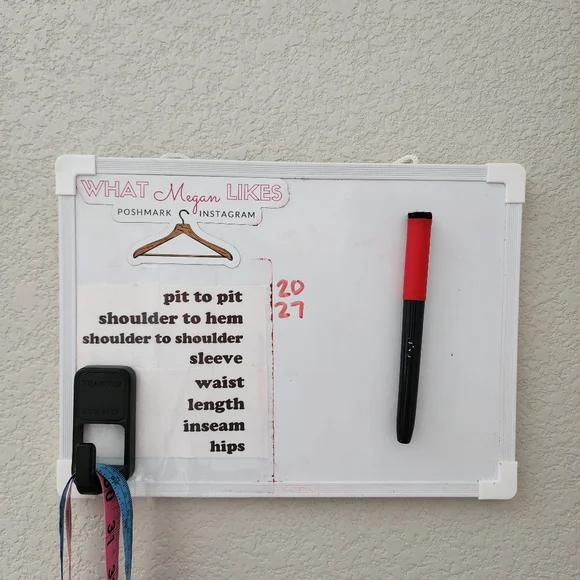 WHAT Megan LIKES
POSHMARK INSTAGRAM
pit to pit 20
shoulder to hem 27
shoulder to shoulder
sleeve
waist
length
inseam
hips